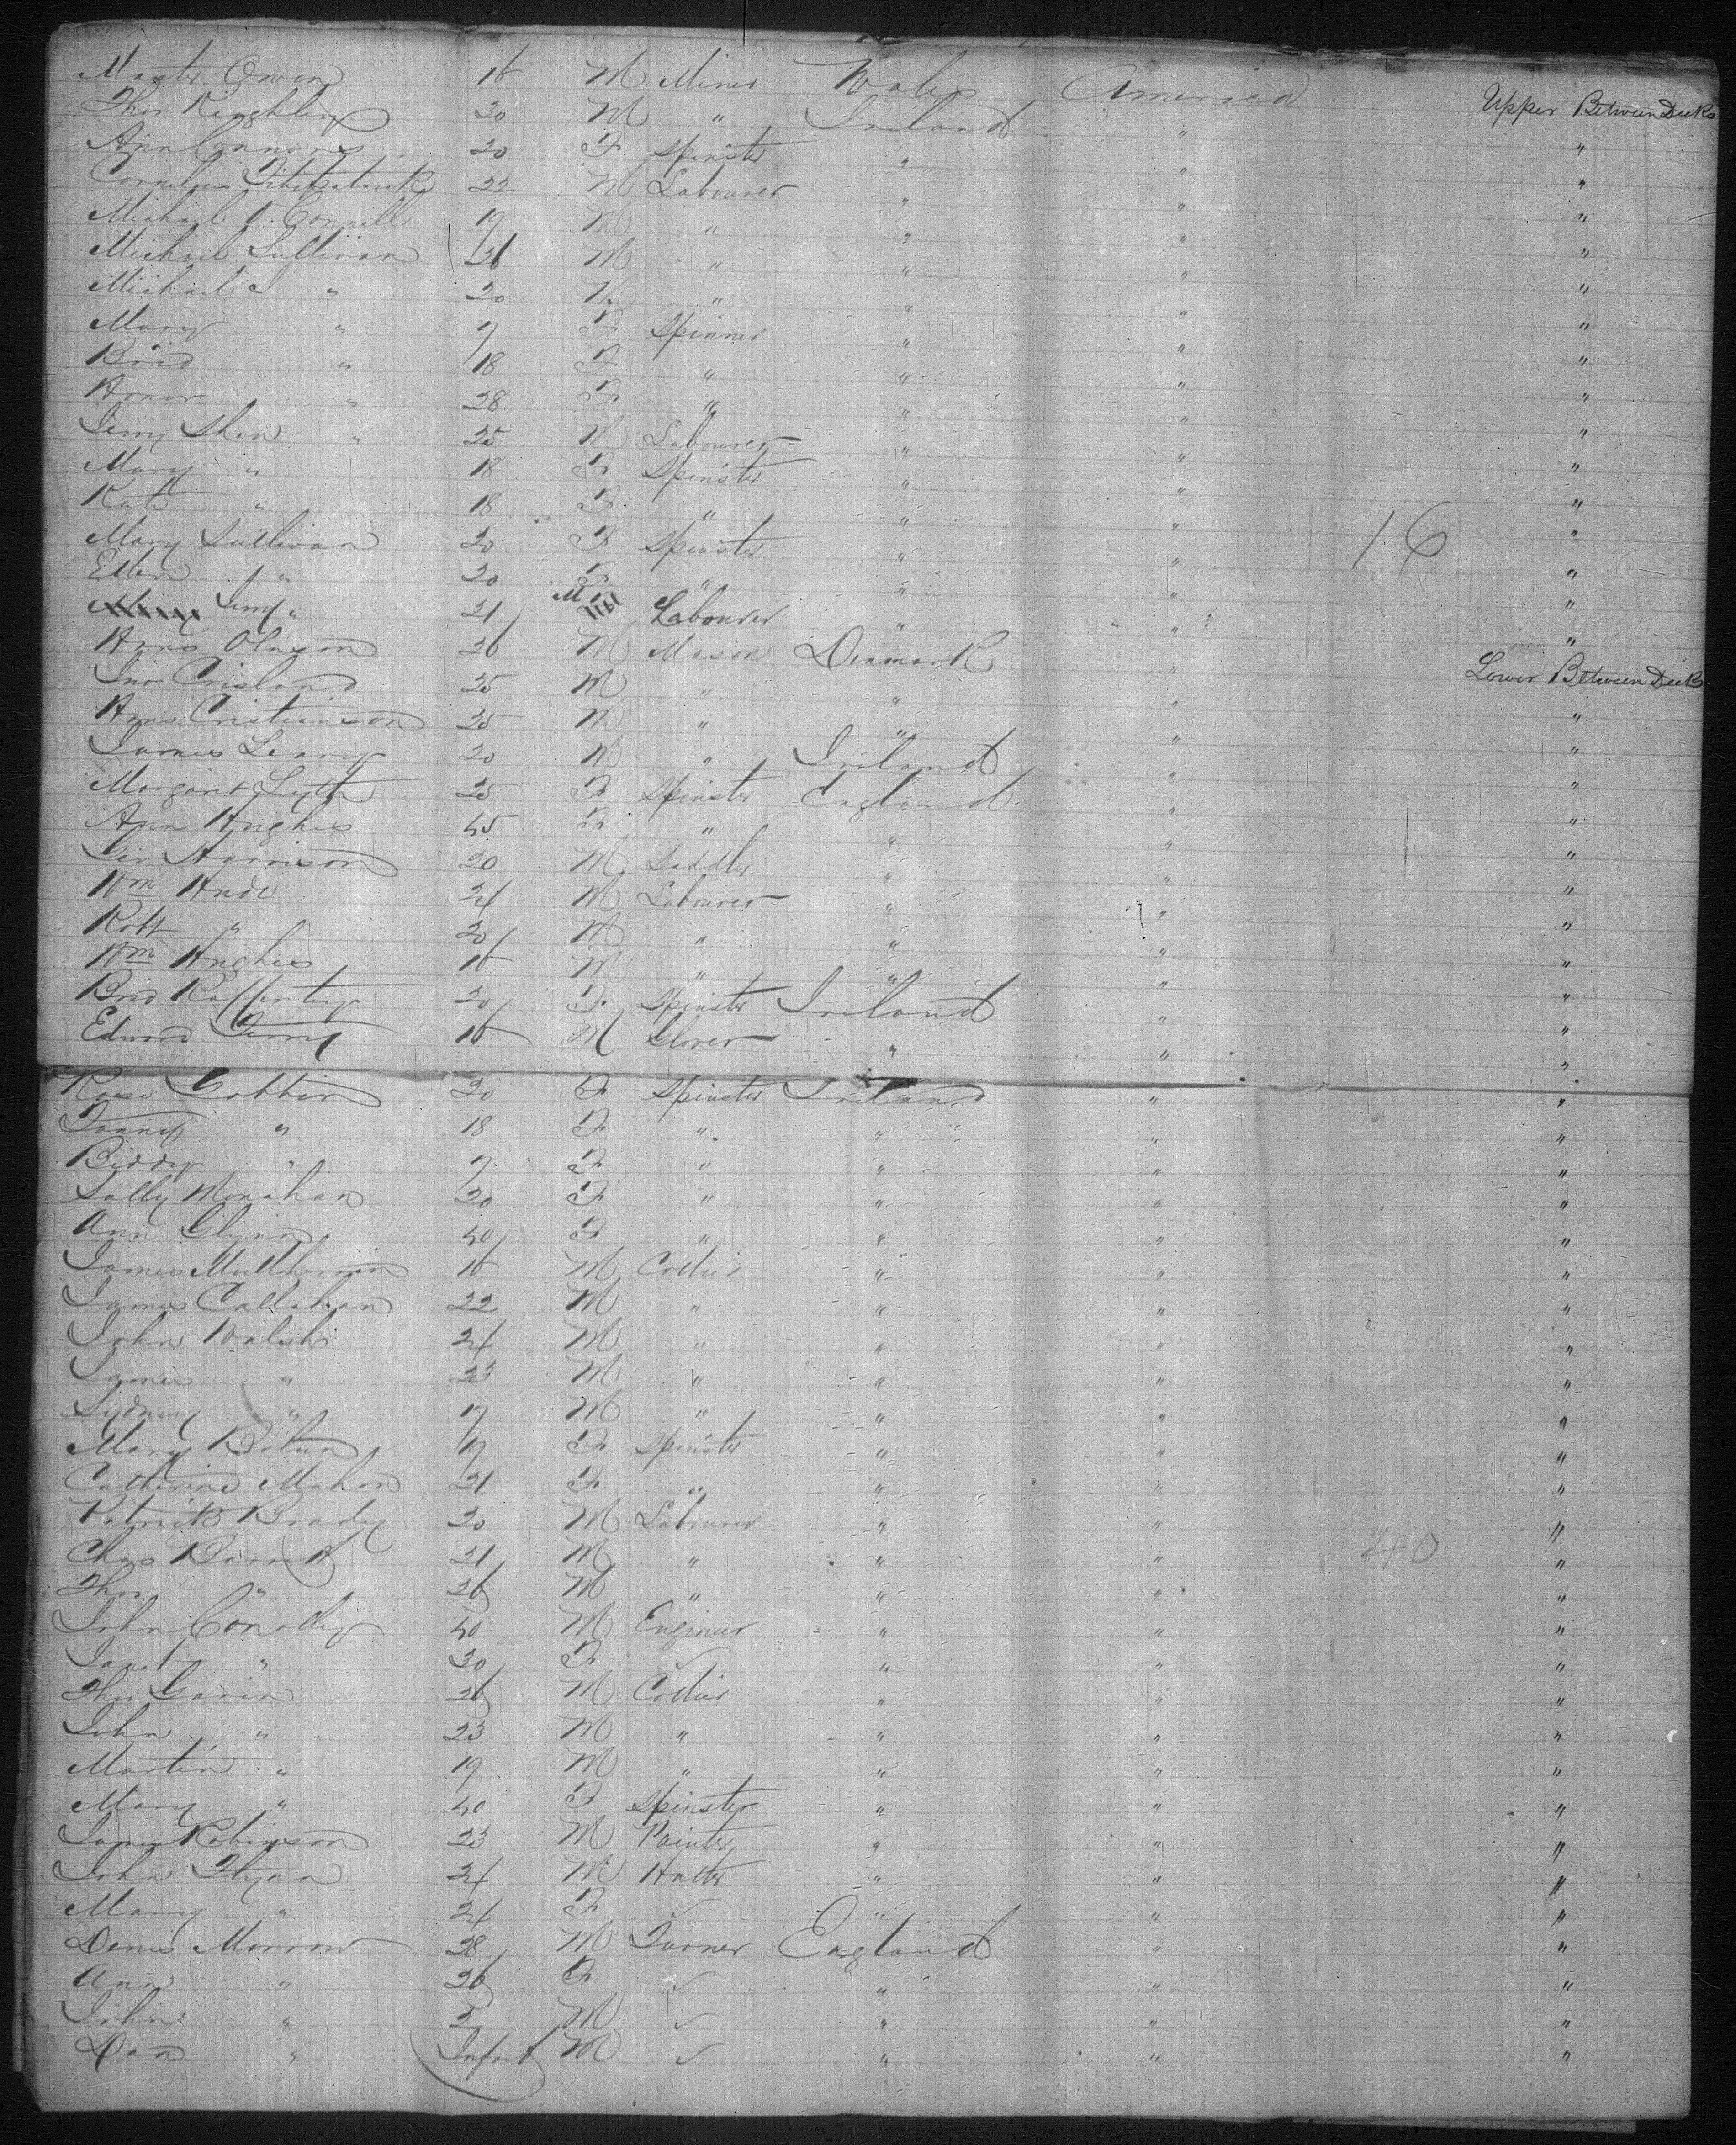 Master Owen 16 M Miner Wales America Upper Between Decks
Thos Keighley 20 M " Ireland " "
Ann Connors 20 F Spinster " " "
Cornelius Fitzpatrick 22 M Labourer " " "
Michael O. Connell 19 M " " " "
Michail Sullivan 26 M " " " "
Michail J " 20 M " " " "
Mary " 7 F Spinner " " "
Brid " 18 F " " " "
Honor " 28 F " " " "
Jerry Shea " 25 M Labourer " " "
Mary " 18 F Spinster " " "
Kate " 18 F " " " 16 "
Mary Sullivan 20 F Spinster " " "
Ellen " 20 F " " " "
Jerry " 21 M Labourer " " "
Hans Oleson 26 M Mason Denmark " Lower Between Decks
Jno 25 M " " " "
Hans Cristianson 25 M " " " "
James Leary 20 M " Ireland " "
Margaret 25 F Spinster England " "
Ann Hughes 45 F " " " "
Geo Harrison 20 M Saddler " " "
Wm Hude 24 M Labourer " " "
Robt " 20 M " " " "
Wm Hughes 16 M " " " "
Brid Raffertey 20 F Spinster Ireland " "
Edward 16 M Glover " " "
Rose 20 F Spinster Ireland " "
Fanney " 18 F " " " "
Biddy " 7 F " " " "
Sally Monahan 20 F " " " "
Ann Glynn 40 F " " " "
James 16 M Collier " " "
James Callahan 22 M " " " "
John Walsh 24 M " " " "
James " 23 M " " " "
Sydney " 17 M " " " "
Mary 19 F Spinster " " "
Catherine Mahon 21 F " " " "
Patrick Brady 20 M Labourer " " "
Chas Barrett 21 M " " " 40 "
Thos " 26 M " " " "
John Conolley 40 M Enginer " " "
Janet " 30 F ✓ " " "
Thos Gavin 26 M Collier " " "
John " 23 M " " " "
Martin " 19 M " " " "
Mary " 40 F Spinster " " "
James Robinson 23 M Painter " " "
John Flynn 24 M Hatter " " "
Mary " 24 F ✓ " " "
Denis Morrow 28 M Turner England " "
Ann " 26 F ✓ " " "
John " 2 M ✓ " " "
Dan " Infant M ✓ " " "